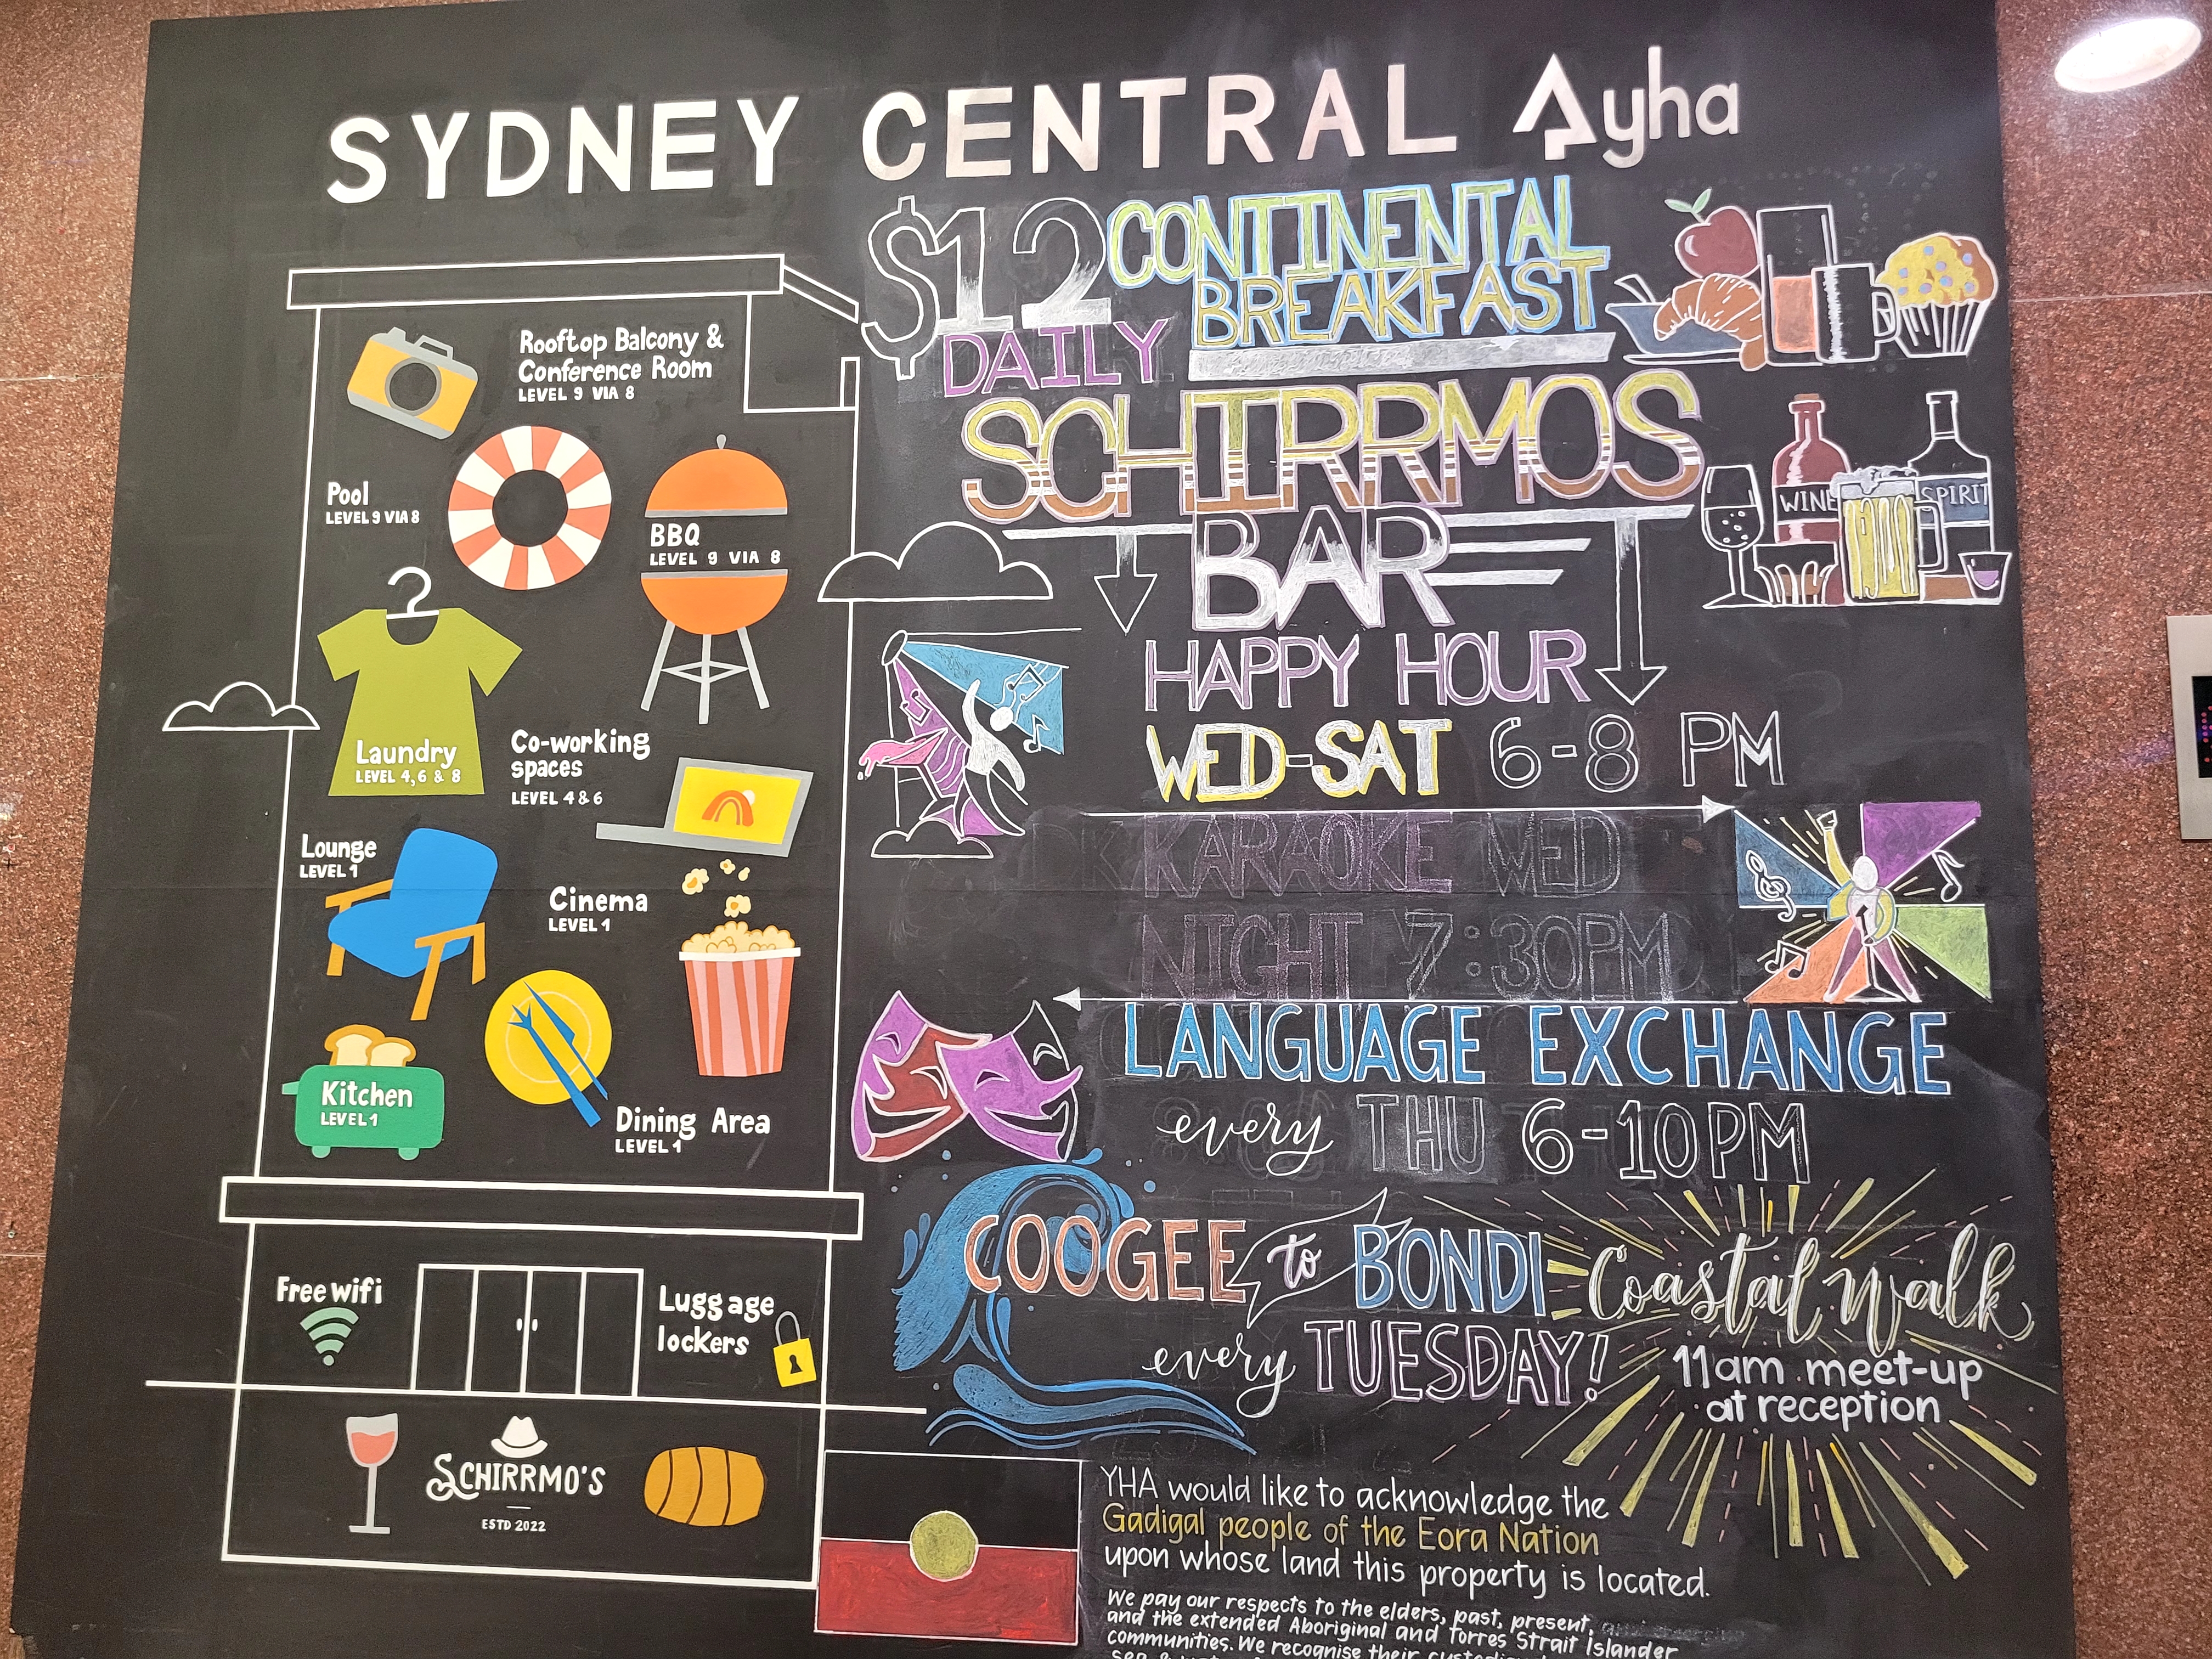 SYDNEY CENTRAL yha
Rooftop Balcony &
Conference Room
LEVEL 9 VIA 8
Pool
LEVEL 9 VIA 8
BBQ
LEVEL 9 VIA 8
Laundry
LEVEL 4, 6 & 8
Co-working
spaces
LEVEL 4 & 6
Lounge
LEVEL 1
Cinema
LEVEL 1
Kitchen
LEVEL 1
Dining Area
LEVEL 1
Free wifi
Luggage
lockers
SCHIRRMO'S
ESTD 2022
$12 CONTINENTAL
BREAKFAST
DAILY
SCHIRRMOS
BAR
WINE
SPIRIT
HAPPY HOUR
WED-SAT 6-8 PM
KARAOKE WED
NIGHT 7:30PM
LANGUAGE EXCHANGE
every THU 6-10PM
COOGEE to BONDI Coastal Walk
every TUESDAY!
11am meet-up
at reception
YHA would like to acknowledge the
Gadigal people of the Eora Nation
upon whose land this property is located.
We pay our respects to the elders, past, present,
and the extended Aboriginal and Torres Strait Islander
communities. We recognise their